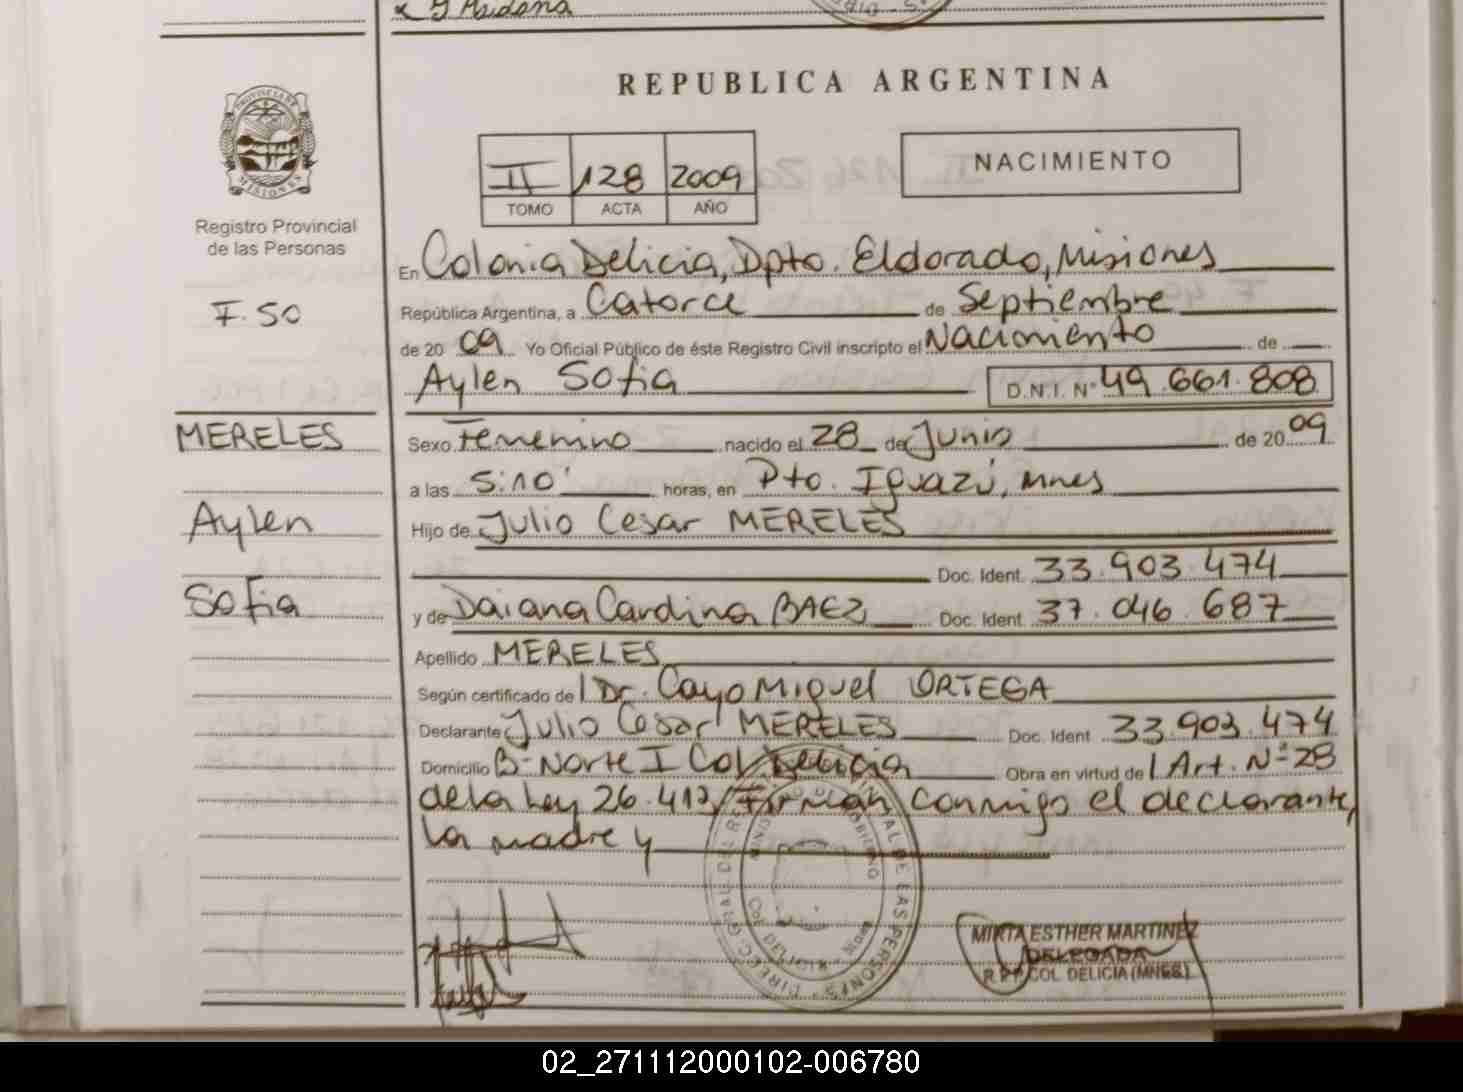 REPUBLICA ARGENTINA
PROVINCIA DE MISIONES
Registro Provincial
de las Personas
F. 50
MERELES
Aylen
Sofia
II 128 2009
TOMO ACTA AÑO
NACIMIENTO
En Colonia Delicia, Dpto. Eldorado, Misiones
República Argentina, a Catorce de Septiembre
de 20 09 Yo Oficial Público de éste Registro Civil inscripto el Nacimiento de
Aylen Sofia D.N.I. N° 49.661.808
Sexo Femenino nacido el 28 de Junio de 20 09
a las 5:10' horas, en Pto. Iguazú, Mnes
Hijo de Julio Cesar MERELES
Doc. Ident. 33.903.474
y de Daiana Carolina BAEZ Doc. Ident. 37.046.687
Apellido MERELES
Según certificado de Dr. Cayo Miguel ORTEGA
Declarante Julio Cesar MERELES Doc. Ident 33.903.474
Domicilio B- Norte I Col Delicia Obra en virtud de Art. N° 28
de la Ley 26.413/ Firman conmigo el declarante,
la madre y
MIRTA ESTHER MARTINEZ
DELEGADA
R.P.P. COL DELICIA (MNES)
02_271112000102-006780